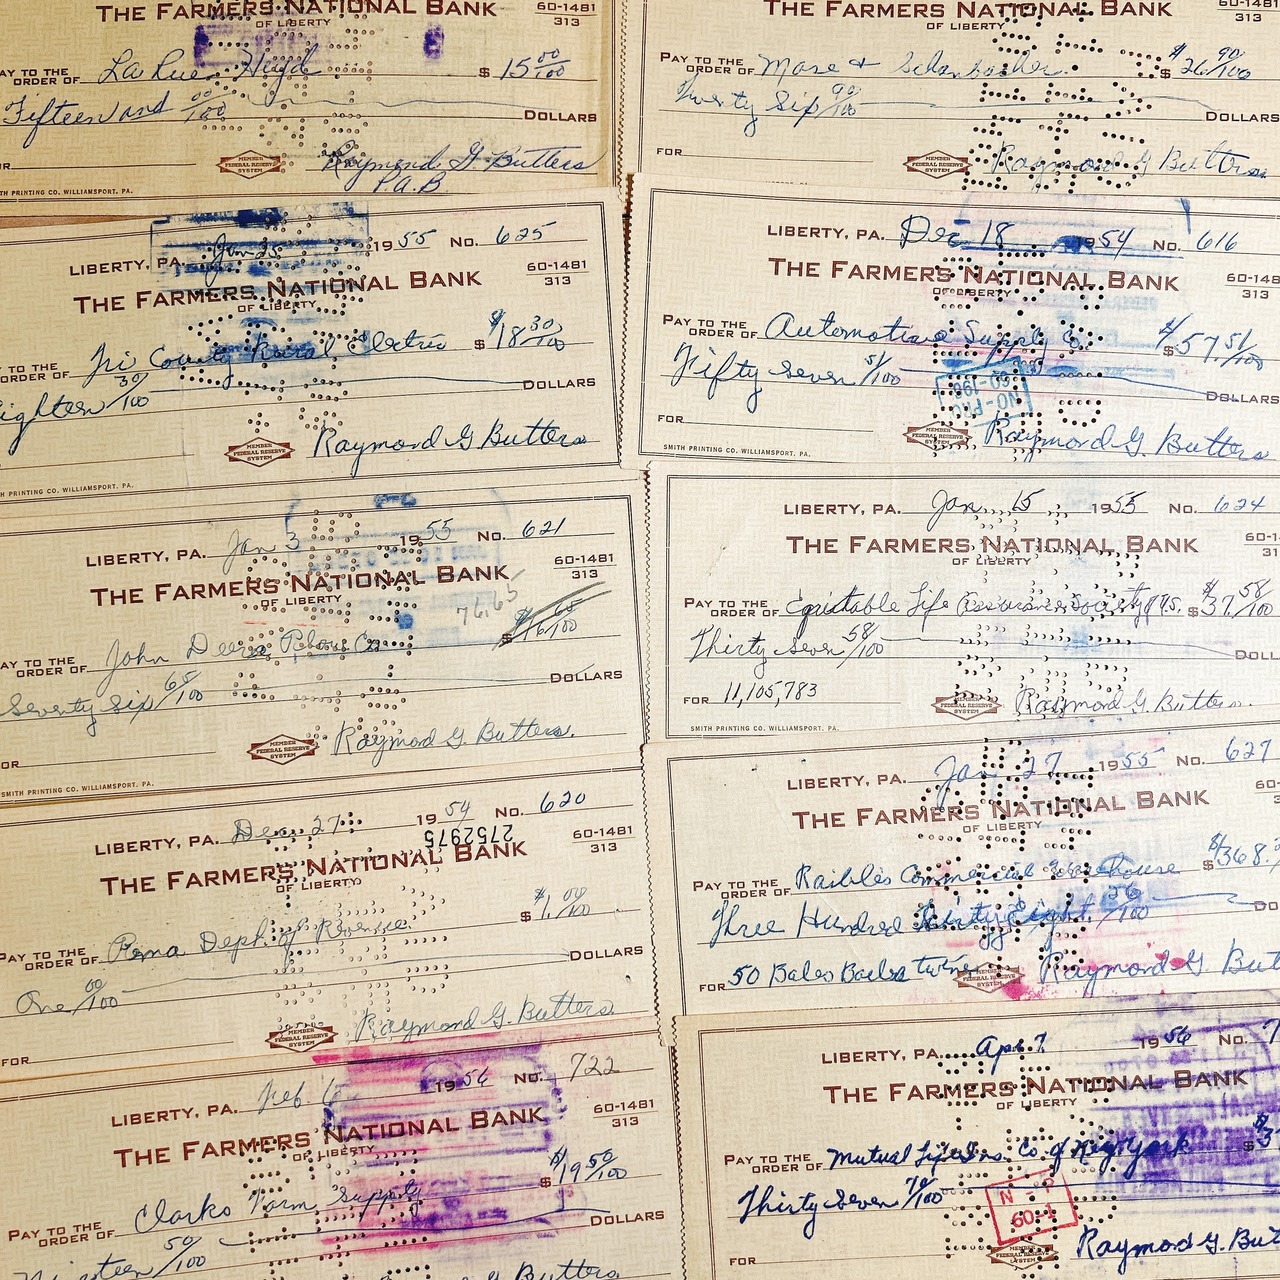 THE FARMERS NATIONAL BANK
OF LIBERTY
60-1481
313
PAY TO THE
ORDER OF La Rue Hyd
$ 15 00/100
Fifteen and 00/100
DOLLARS
OR
MEMBER
FEDERAL RESERVE
SYSTEM
Raymond G. Butters
P.A.B
SMITH PRINTING CO. WILLIAMSPORT, PA.
THE FARMERS NATIONAL BANK
OF LIBERTY
60-1481
313
PAY TO THE
ORDER OF Mase &
$ 26 90/100
Twenty Six 90/100
DOLLARS
FOR
MEMBER
FEDERAL RESERVE
SYSTEM
Raymond G Butters
LIBERTY, PA. Jan 25 1955 No. 625
THE FARMERS NATIONAL BANK
OF LIBERTY
60-1481
313
PAY TO THE
ORDER OF Tri County Rural Electric
$ 18 30/100
Eighteen 30/100
DOLLARS
MEMBER
FEDERAL RESERVE
SYSTEM
Raymond G Butters
H PRINTING CO. WILLIAMSPORT, PA.
LIBERTY, PA. Dec 18 1954 No. 616
THE FARMERS NATIONAL BANK
OF LIBERTY
60-1481
313
PAY TO THE
ORDER OF Automotive Supply Co
$ 57 51/100
Fifty Seven 51/100
DOLLARS
FOR
MEMBER
FEDERAL RESERVE
SYSTEM
Raymond G Butters
SMITH PRINTING CO. WILLIAMSPORT, PA.
LIBERTY, PA. Jan 3 1955 No. 621
THE FARMERS NATIONAL BANK
OF LIBERTY
60-1481
313
76.65
PAY TO THE
ORDER OF John Deere Plow Co
$ 76 65/100
Seventy Six 65/100
DOLLARS
OR
MEMBER
FEDERAL RESERVE
SYSTEM
Raymond G. Butters.
SMITH PRINTING CO. WILLIAMSPORT, PA.
LIBERTY, PA. Jan 15, 1955 No. 624
THE FARMERS NATIONAL BANK
OF LIBERTY
60-1481
31
PAY TO THE
ORDER OF Equitable Life Assurance Society
$ 37. 58/100
Thirty Seven 58/100
DOLL
FOR 11,105,783
MEMBER
FEDERAL RESERVE
SYSTEM
Raymond G. Butters.
SMITH PRINTING CO. WILLIAMSPORT, PA.
LIBERTY, PA. Dec. 27 1954 No. 620
2752975
THE FARMERS NATIONAL BANK
OF LIBERTY
60-1481
313
PAY TO THE
ORDER OF Penna Dept. of Revenue.
$ 1. 00/100
One 00/100
DOLLARS
FOR
MEMBER
FEDERAL RESERVE
SYSTEM
Raymond G. Butters
LIBERTY, PA. Jan 27 1955 No. 627
THE FARMERS NATIONAL BANK
OF LIBERTY
60-1481
313
PAY TO THE
ORDER OF Raibles Commercial Warehouse
$ 368.
Three Hundred Sixty Eight. /100
DO
FOR 50 Bales Baler twine
MEMBER
FEDERAL RESERVE
SYSTEM
Raymond G. But
LIBERTY, PA. Feb. 1956 No. 722
THE FARMERS NATIONAL BANK
OF LIBERTY
60-1481
313
PAY TO THE
ORDER OF Clarks Farm Supply
$ 19 50/100
Nineteen 50/100
DOLLARS
G Butters
LIBERTY, PA. Apr. 7 1956 No. 7
THE FARMERS NATIONAL BANK
OF LIBERTY
PAY TO THE
ORDER OF Mutual Life Ins. Co. of New York
$ 3
Thirty Seven 70/100
60-1
FOR
MEMBER
FEDERAL RESERVE
SYSTEM
Raymond G. But